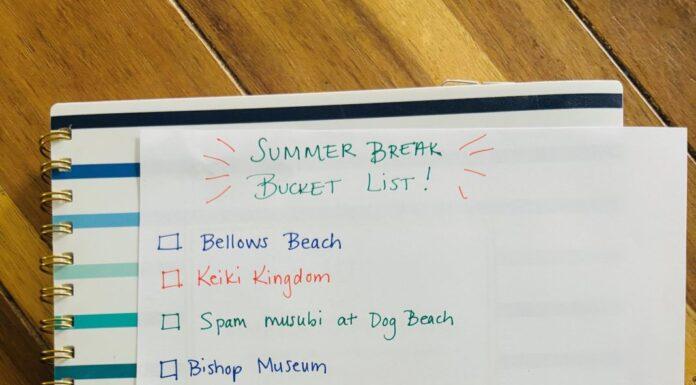 SUMMER BREAK
BUCKET LIST!
Bellows Beach
Keiki Kingdom
Spam musubi at Dog Beach
Bishop Museum